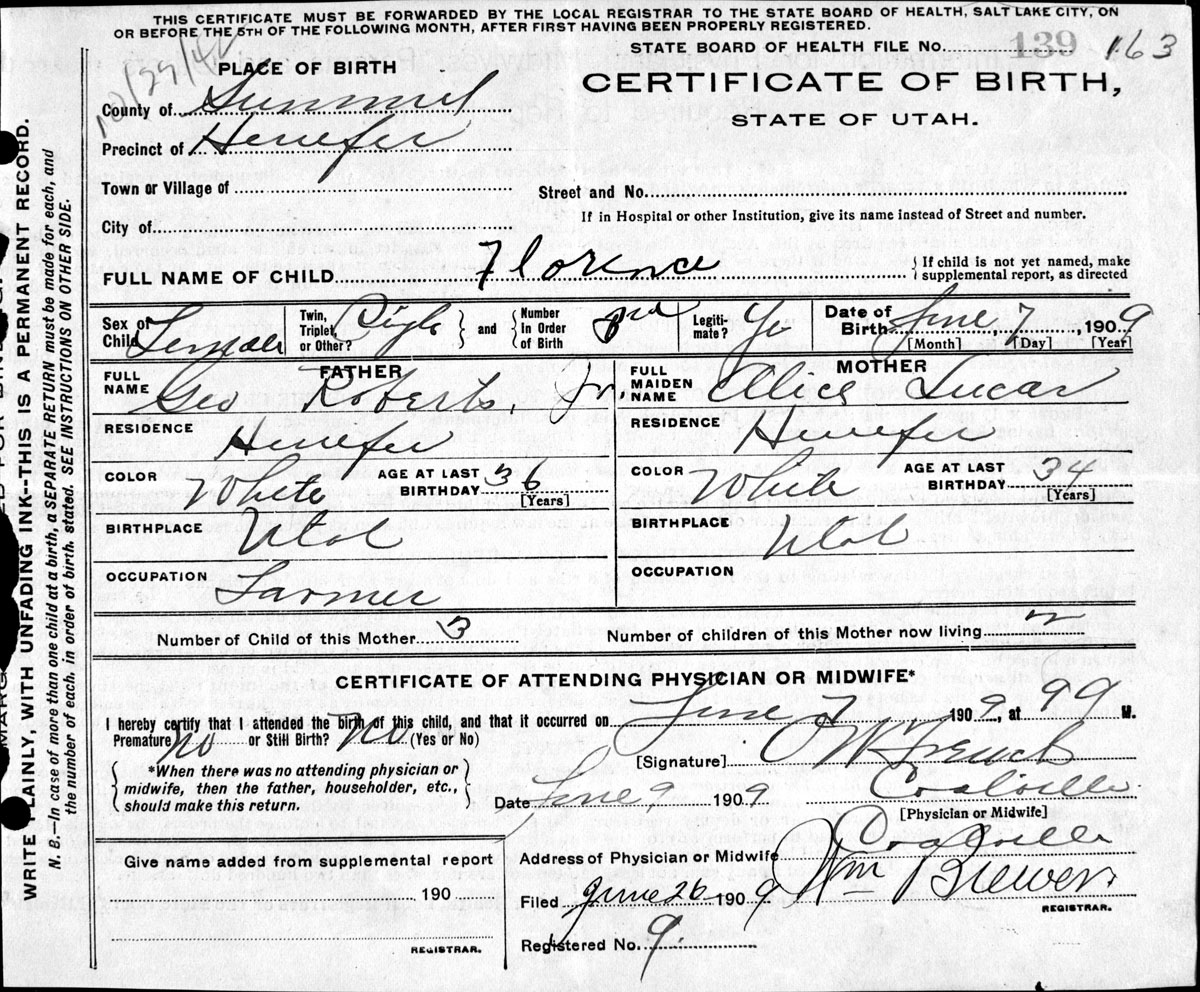 THIS CERTIFICATE MUST BE FORWARDED BY THE LOCAL REGISTRAR TO THE STATE BOARD OF HEALTH, SALT LAKE CITY, ON
OR BEFORE THE 5TH OF THE FOLLOWING MONTH, AFTER FIRST HAVING BEEN PROPERLY REGISTERED.
STATE BOARD OF HEALTH FILE No. 139 163
PLACE OF BIRTH
CERTIFICATE OF BIRTH,
STATE OF UTAH.
County of Summit
Precinct of Henefer
Town or Village of
Street and No.
If in Hospital or other Institution, give its name instead of Street and number.
City of
FULL NAME OF CHILD Florence { If child is not yet named, make
supplemental report, as directed
Sex of Child Female Twin, Triplet, or Other? } and { Number In Order of Birth 3rd Legiti-mate? Date of Birth June 7, 1909
[Month] [Day] [Year]
FATHER MOTHER
FULL NAME Geo Roberts, Jr. FULL MAIDEN NAME Alice Lucas
RESIDENCE Henefer RESIDENCE Henefer
COLOR White AGE AT LAST BIRTHDAY 36 [Years] COLOR White AGE AT LAST BIRTHDAY 34 [Years]
BIRTHPLACE Utah BIRTHPLACE Utah
OCCUPATION Farmer OCCUPATION
Number of Child of this Mother 3 Number of children of this Mother now living
CERTIFICATE OF ATTENDING PHYSICIAN OR MIDWIFE*
I hereby certify that I attended the birth of this child, and that it occurred on June 7 1909, at M.
Premature No or Still Birth? No (Yes or No)
[Signature] O W French
{ *When there was no attending physician or
midwife, then the father, householder, etc.,
should make this return. }
Date June 9 1909 Coalville
[Physician or Midwife]
Give name added from supplemental report
190
REGISTRAR.
Address of Physician or Midwife Coalville
Filed June 26 1909 Wm Brewer
REGISTRAR.
Registered No. 9.
WRITE PLAINLY, WITH UNFADING INK--THIS IS A PERMANENT RECORD.
N. B.—In case of more than one child at a birth, a SEPARATE RETURN must be made for each, and
the number of each, in order of birth, stated. SEE INSTRUCTIONS ON OTHER SIDE.